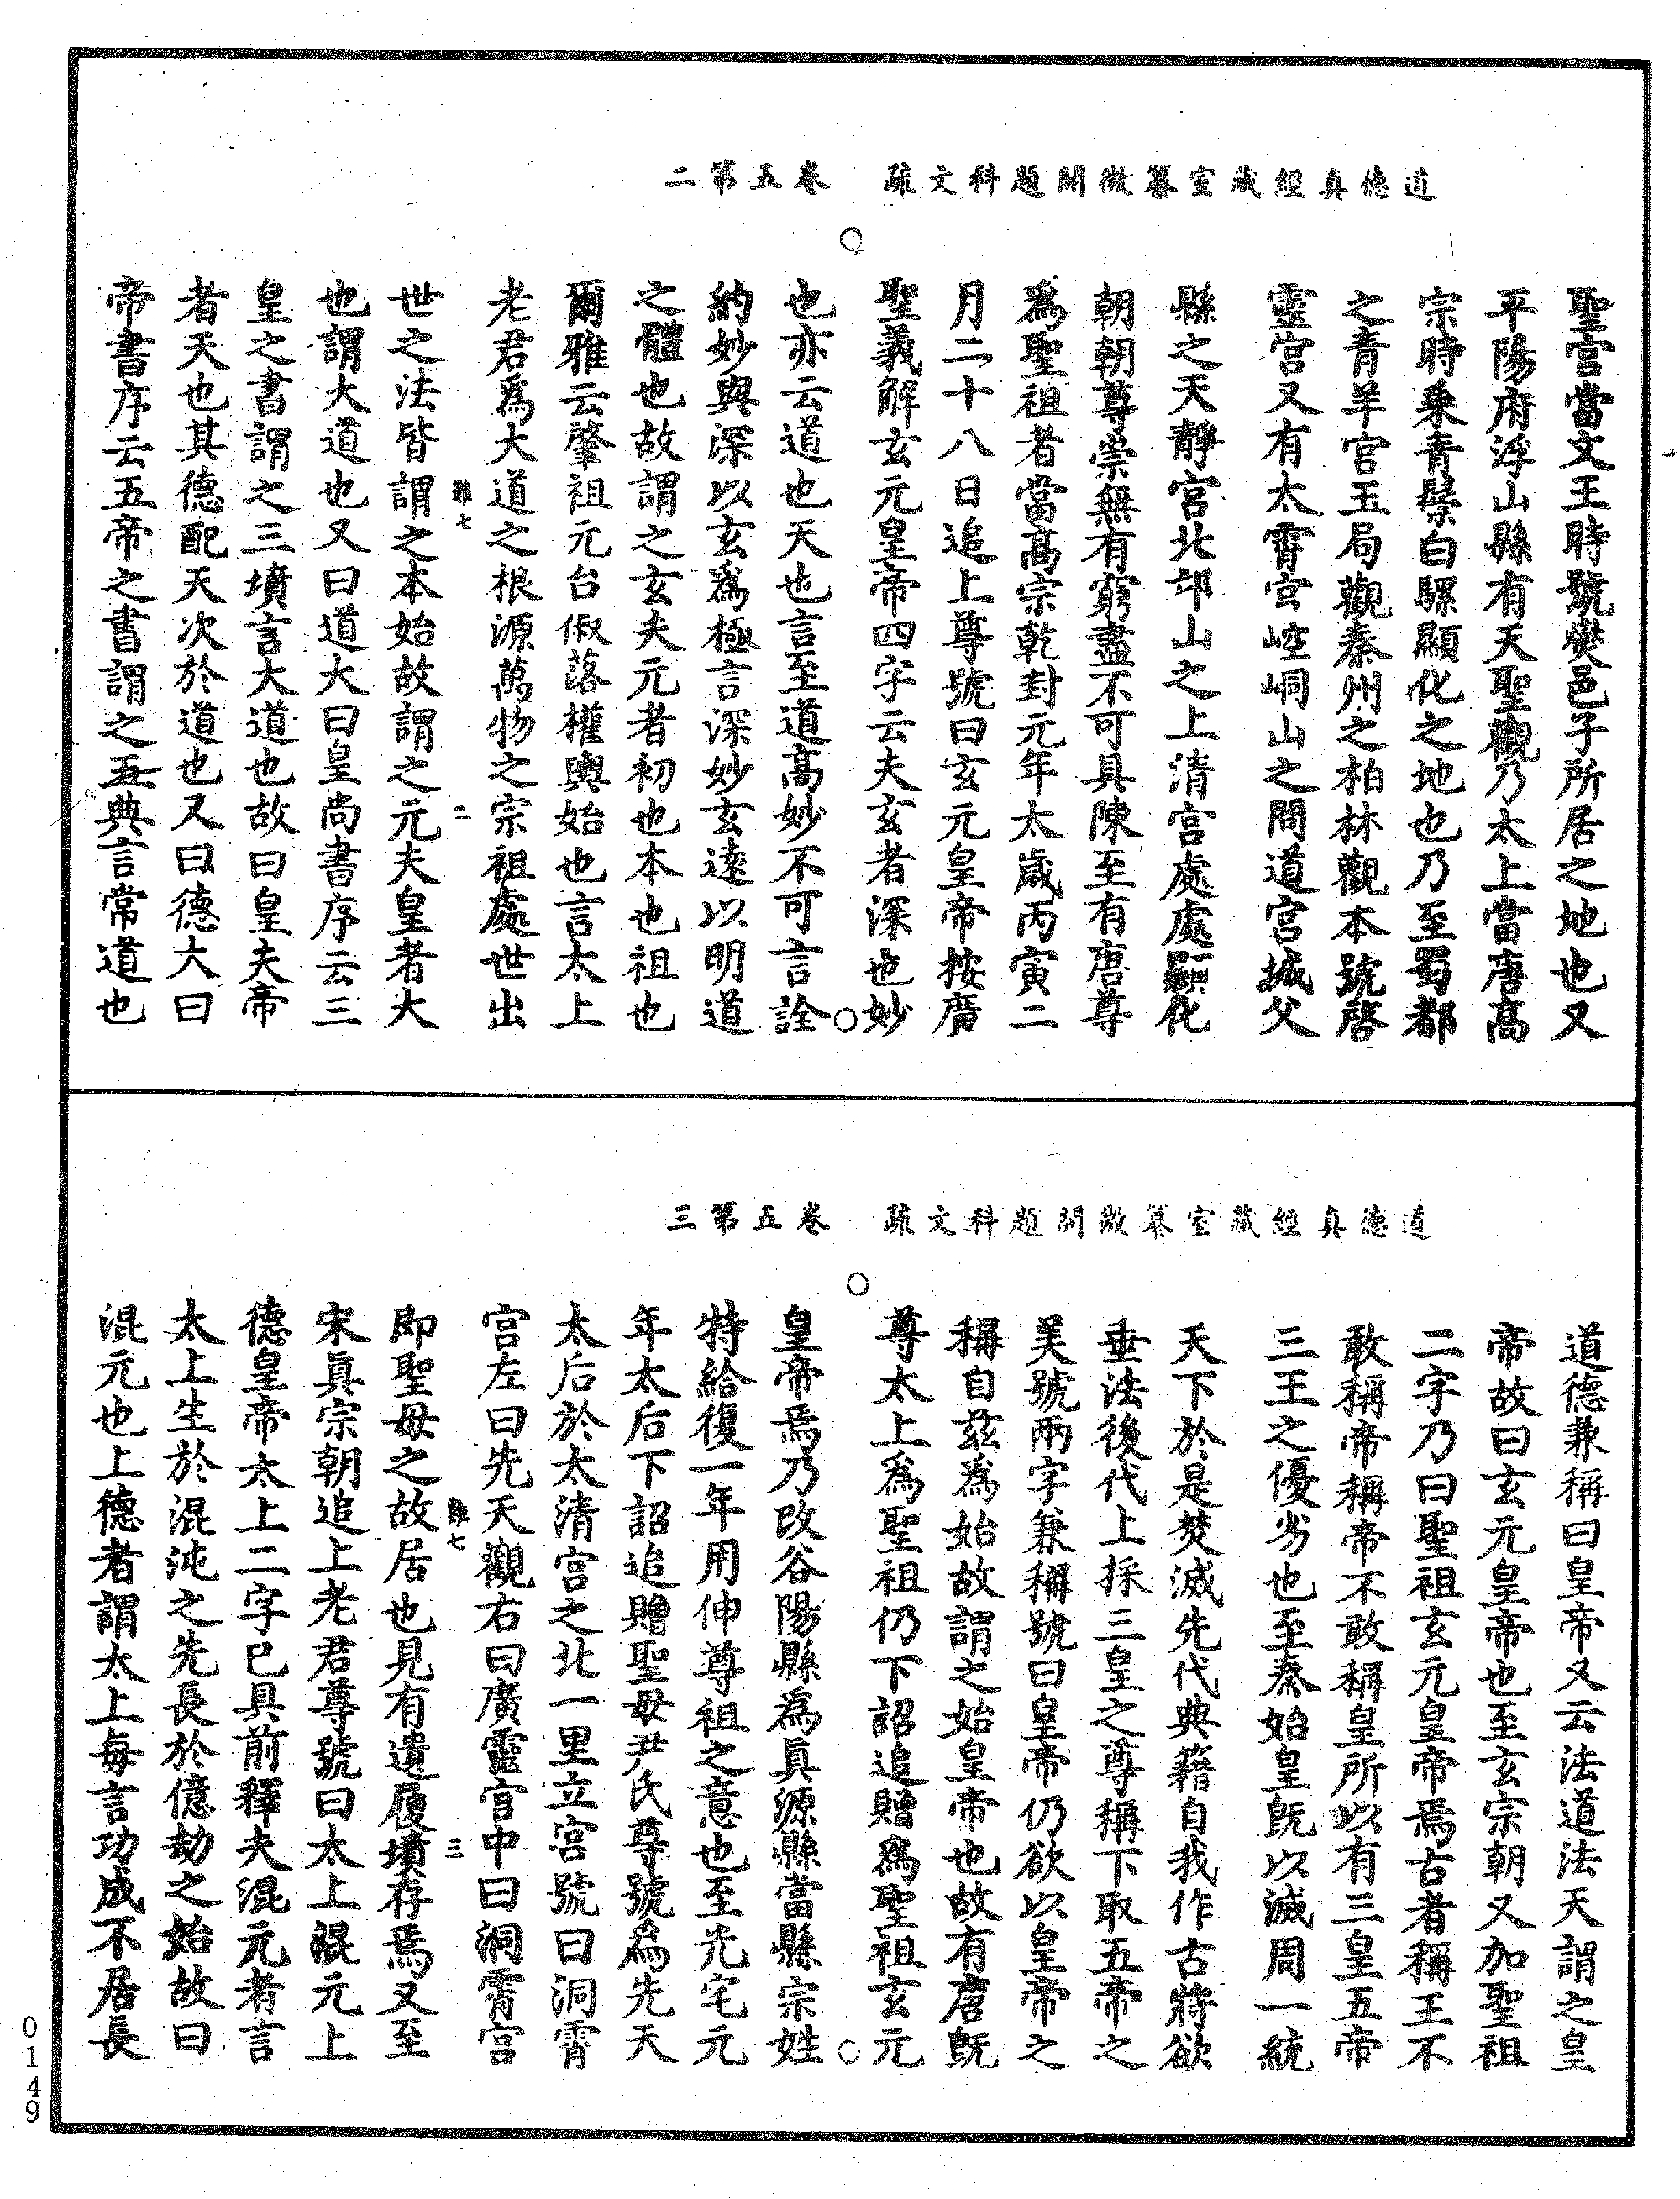 道德真經藏室纂微開題科文疏 卷五第二
聖宫當文王時號爕邑子所居之地也又
平陽府浮山縣有天聖觀乃太上當唐高
宗時乘青䯄白騾顯化之地也乃至蜀都
之青羊宫玉局觀秦州之柏林觀本號啓
靈宫又有太霄宫崆峒山之問道宫城父
縣之天靜宫北邙山之上清宫處處顯化
朝朝尊崇無有窮盡不可具陳至有唐尊
爲聖祖者當高宗乾封元年太歲丙寅二
月二十八日追上尊號曰玄元皇帝按廣
聖義解玄元皇帝四字云夫玄者深也妙
也亦云道也天也言至道高妙不可言詮
約妙與深以玄爲極言深妙玄遠以明道
之體也故謂之玄夫元者初也本也祖也
爾雅云肇祖元台俶落權輿始也言太上
老君爲大道之根源萬物之宗祖處世出
難七 二
世之法皆謂之本始故謂之元夫皇者大
也謂大道也又曰道大曰皇尚書序云三
皇之書謂之三墳言大道也故曰皇夫帝
者天也其德配天次於道也又曰德大曰
帝書序云五帝之書謂之五典言常道也
道德真經藏室纂微開題科文疏 卷五第三
道德兼稱曰皇帝又云法道法天謂之皇
帝故曰玄元皇帝也至玄宗朝又加聖祖
二字乃曰聖祖玄元皇帝焉古者稱王不
敢稱帝稱帝不敢稱皇所以有三皇五帝
三王之優劣也至秦始皇旣以滅周一統
天下於是焚滅先代典籍自我作古將欲
垂法後代上採三皇之尊稱下取五帝之
美號兩字兼稱號曰皇帝仍欲以皇帝之
稱自兹爲始故謂之始皇帝也故有唐旣
尊太上爲聖祖仍下詔追贈爲聖祖玄元
皇帝焉乃改谷陽縣爲眞源縣當縣宗姓
特給復一年用伸尊祖之意也至光宅元
年太后下詔追贈聖母尹氏尊號爲先天
太后於太清宫之北一里立宫號曰洞霄
宫左曰先天觀右曰廣靈宫中曰洞霄宫
難七 三
即聖母之故居也見有遺履墳存焉又至
宋眞宗朝追上老君尊號曰太上混元上
德皇帝太上二字已具前釋夫混元者言
太上生於混沌之先長於億劫之始故曰
混元也上德者謂太上每言功成不居長
0149